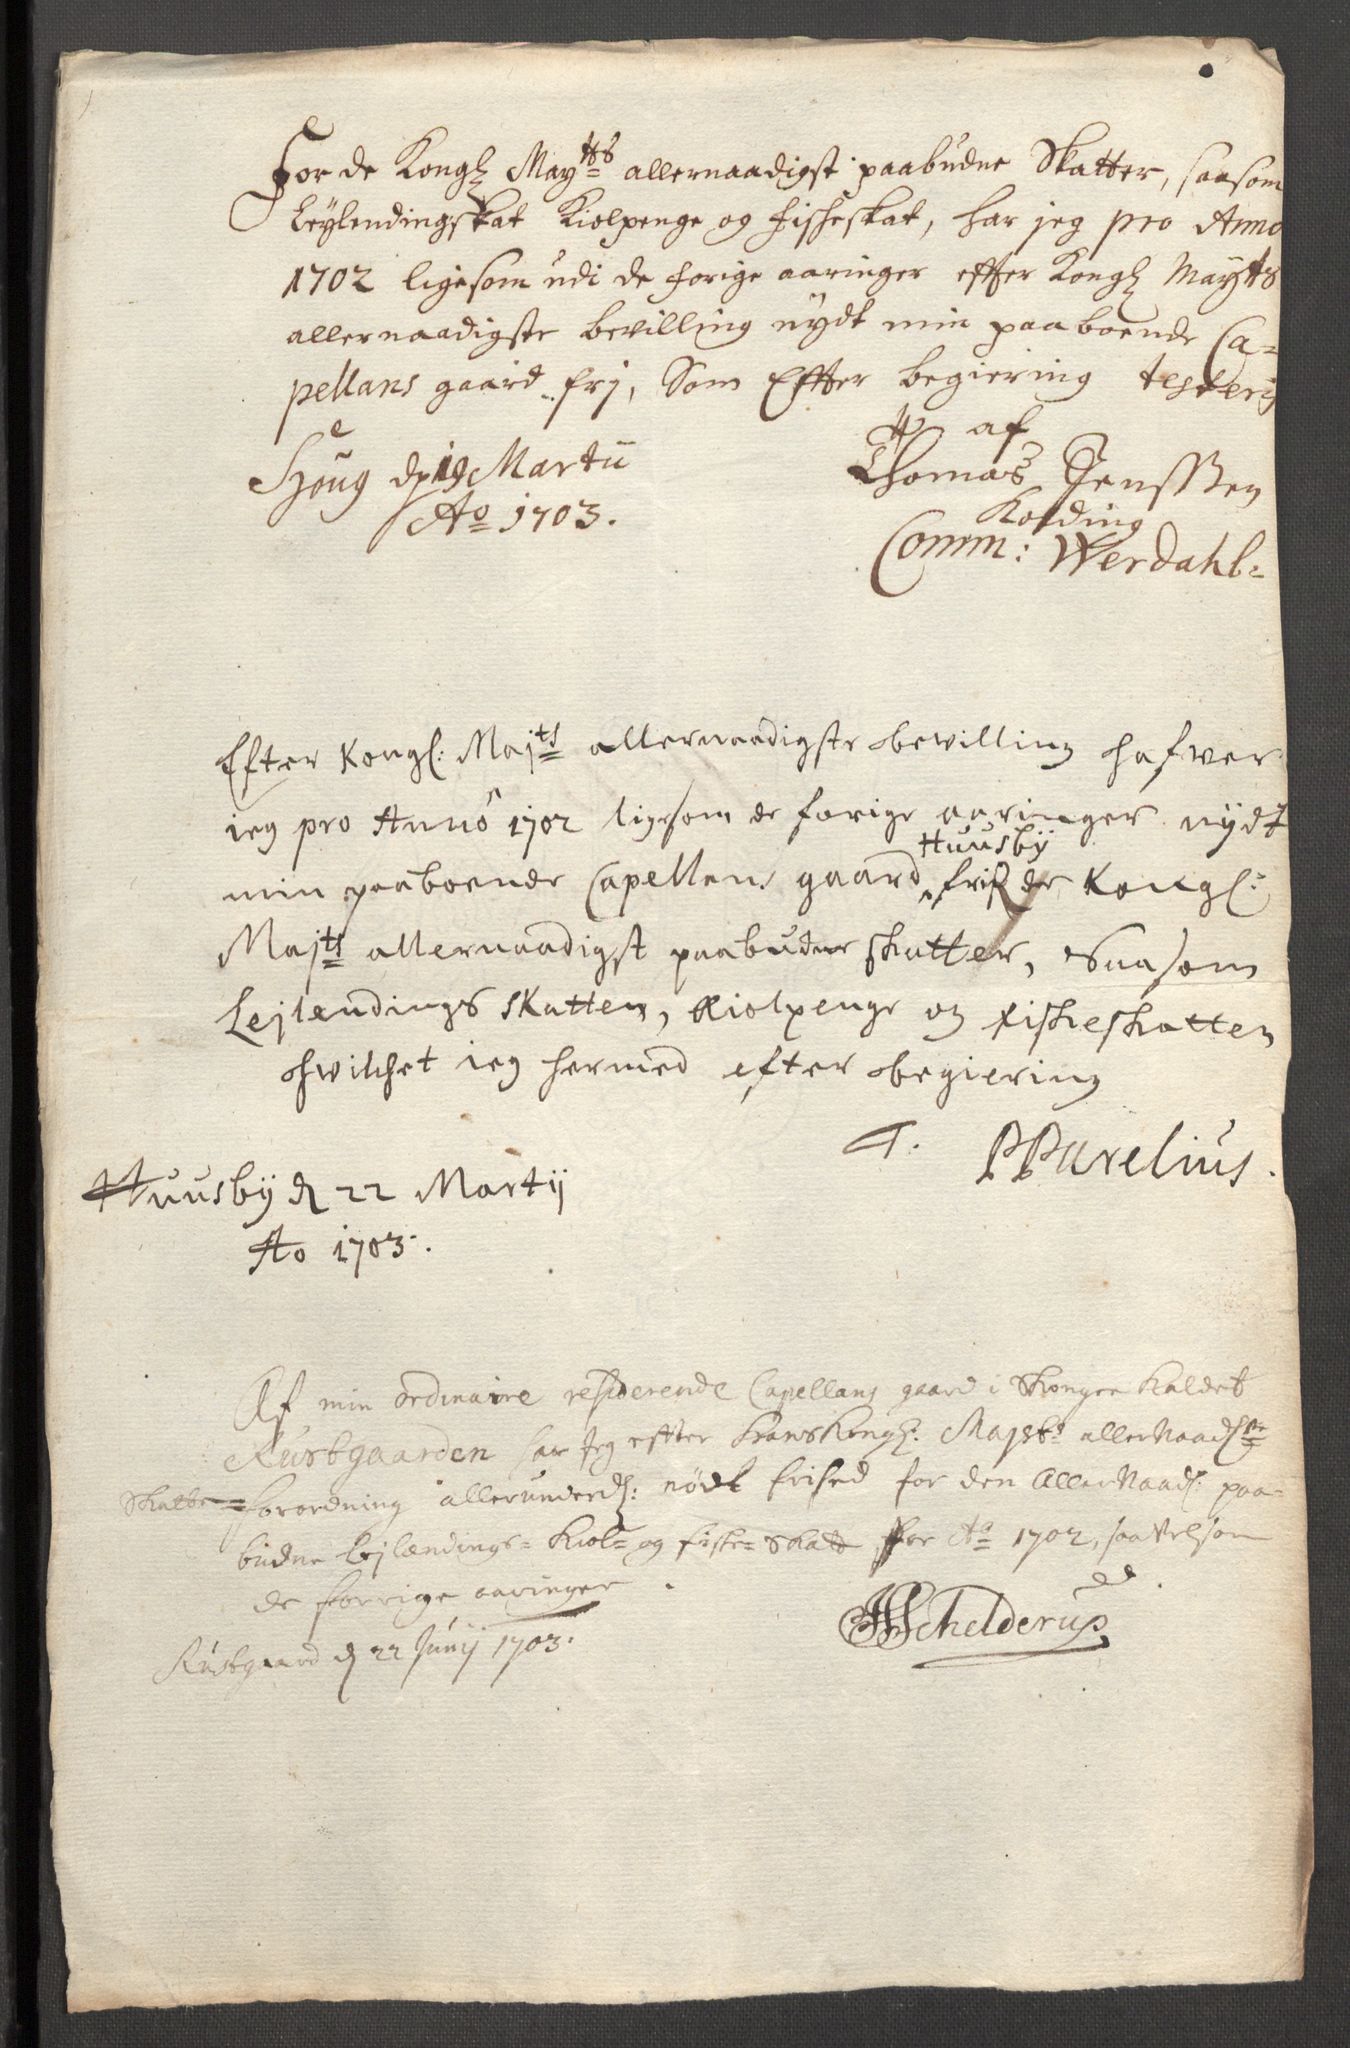 For de Kongl Maytts allernaadigst paabudne Skatter, saasom
Leylendingskat Kiolpenge og fischeskat, har jeg pro Anno
1702 ligesom udi de forige aaringer effter Kongl Mayts
allernaadigste bevilling nydt min paaboende Ca-
pellans gaard frj, Som Effter begiering testeris
af
Houg d 19 Martii
Ao 1703.
Thomas Jenssen
Kolding
Comm: Werdahl
Efter Kongl: Majts allernaadigste bewilling hafver
ieg pro Anno 1702 ligesom de forige aaringer nydt
Huusbÿ
min paaboende Capellens gaard fri de Kongl:
Majts allernaadigst paabudne skatter, Saasom
Lejlendings skatten, Kiolpenge og fiskeskatten
hwilchet ieg hermed efter begiering
T. PPArelius.
Huusbÿ d 22 Martij
Ao 1703.
Af min ordinaire residerende Capellans gaard i Skongen kaldet
Rustgaarden har Jeg effter Hans Kongl: Majsts allernaadste
Skatte= forordning allerunderd: nödt frihed for den AllerNaad: paa-
budne Lejlændings= Kiol= og fiske= Skatt for Ao 1702, saavelsom
de forrige aaringer.
HSchelderup
Rustgaard d 22 Junij 1703.